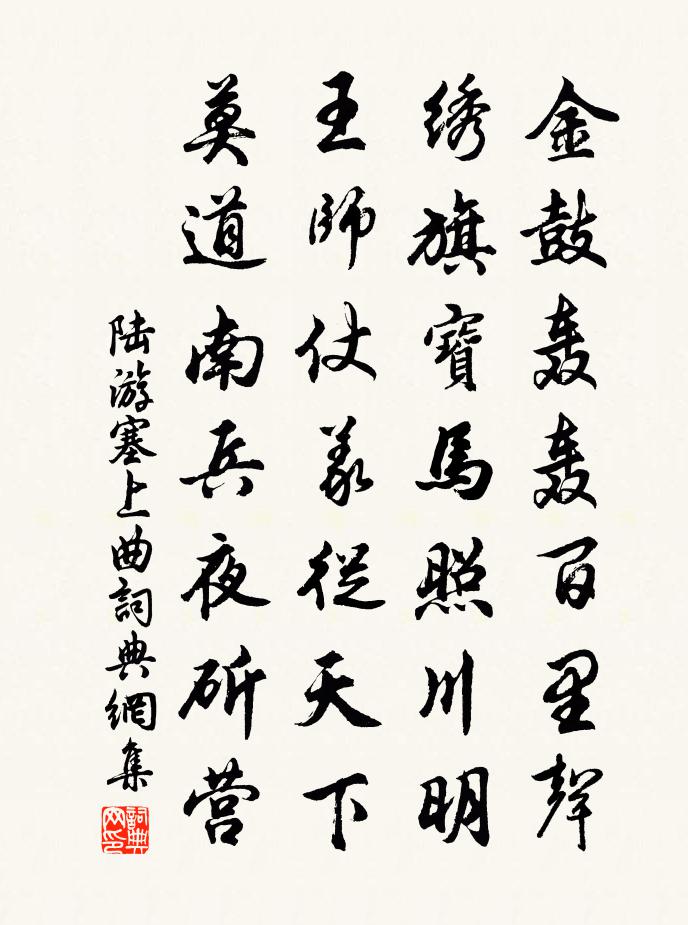 金鼓轰轰百里聲
绣旗寶馬照川明
王師仗義從天下
莫道南兵夜斫营
陆游塞上曲詞典網集
詞典网印